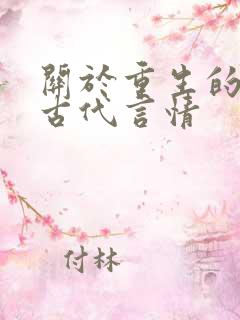 關於重生的
古代言情
付林